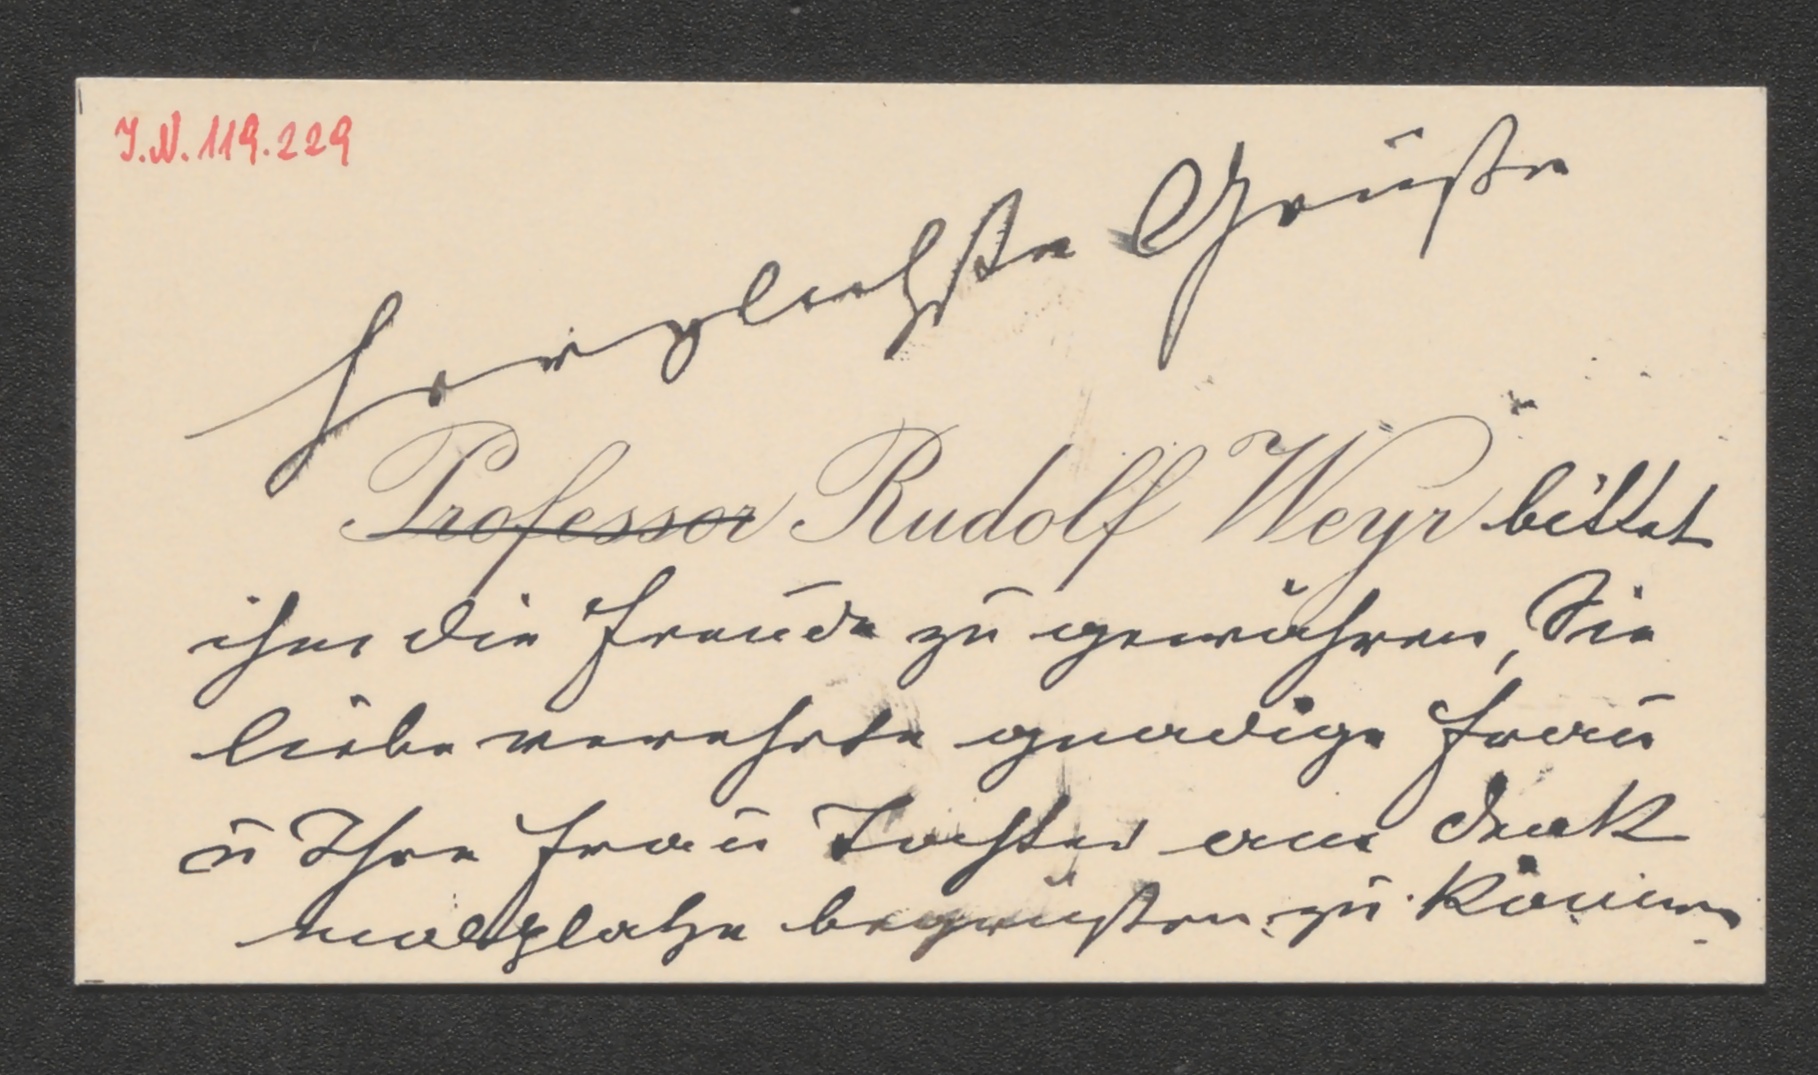 J.N. 119.229
herzlichste Grüße
Professor Rudolf Weyr bittet
ihm die Freude zu gewähren, Sie
liebe verehrte gnädige Frau
u Ihre Frau Tochter am Denk
malplatze begrüßen zu können